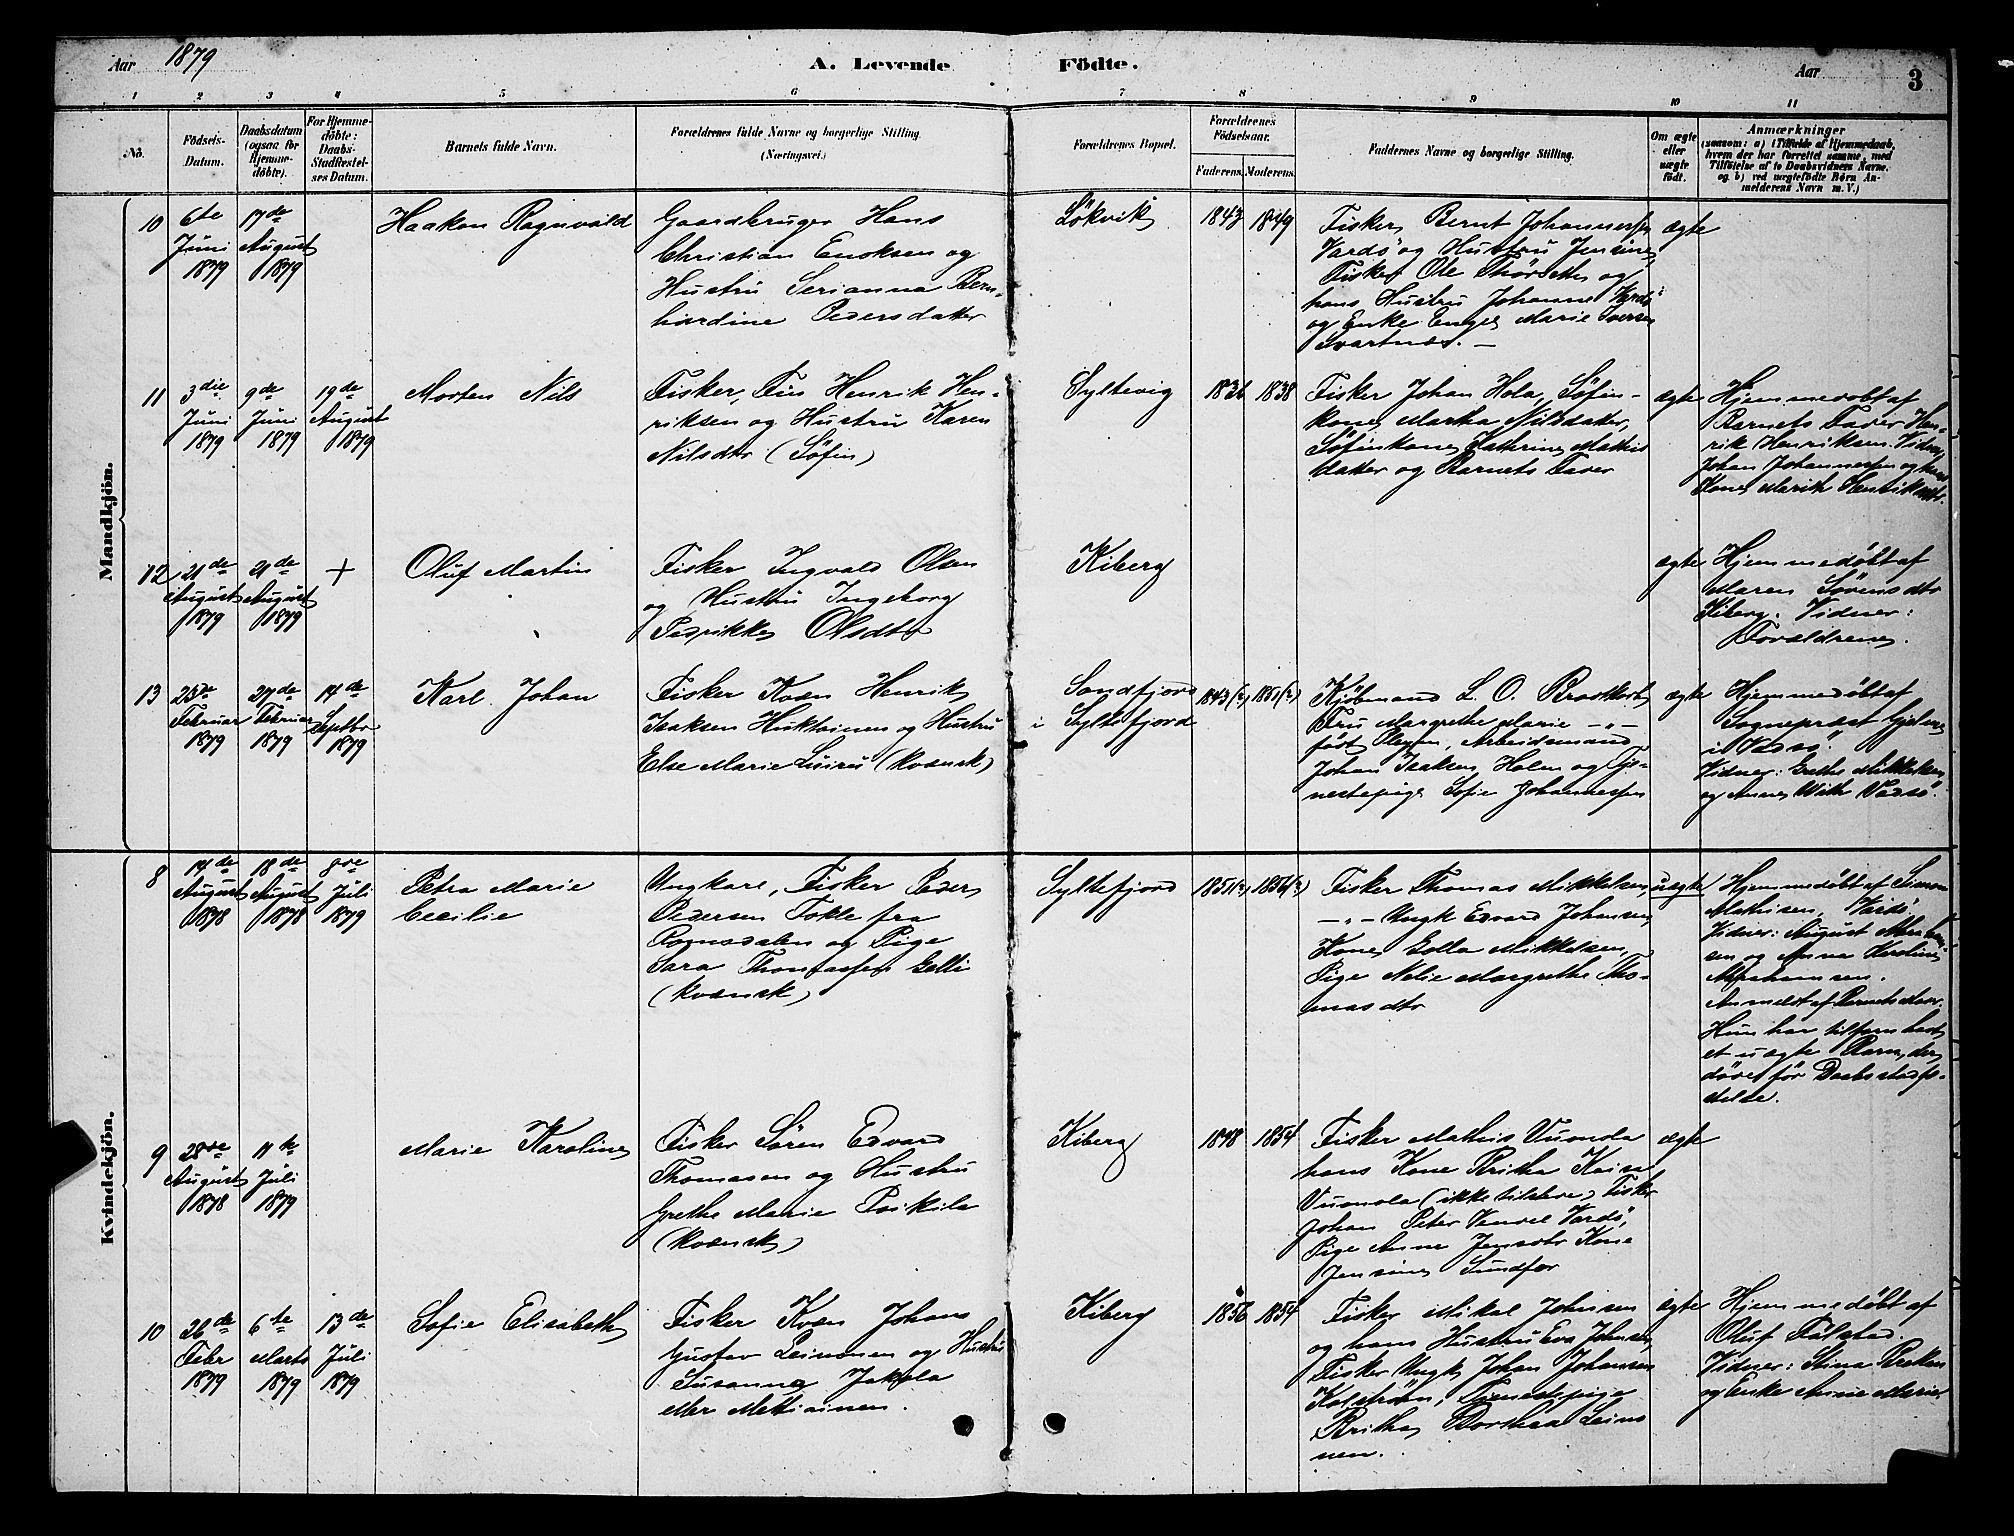 Aar 1879
A. Levende Födte.
Aar 3
1 2 3 4 5 6 7 8 9 10 11
No.
Födsels-Datum.
Daabsdatum (ogsaa for Hjemme-döbte).
For Hjemme-döbte: Daabs-Stadfæstel-ses Datum.
Barnets fulde Navn.
Forældrenes fulde Navne og borgerlige Stilling.
(Næringsvei.)
Forældrenes Bopæl.
Forældrenes Födselsaar.
Faderens. Moderens.
Faddernes Navne og borgerlige Stilling.
Om ægte eller uægte födt.
Anmærkninger
(saasom: a) i Tilfælde af Hjemmedaab, hvem der har forrettet samme, med Tilföielse af to Daabsvidners Navne, og b) ved uægtefödte Börn Anmelderens Navn m. V.)
Mandkjön.
10
6te Juni 1879
17de August 1879
Haakon Ragnvald
Gaardbruger Hans
Christian Enoksen og
Hustru Serianna Bern-
hardine Pedersdatter
Lökvik
1843 1849
Fisker Bernt Johannessen
Vardö og Hustru Jensine,
Fisker Ole
hans Hustru Johanne Vardö
og Enke Marie Iversen
Svartnæs. —
ægte
11
3die Juni 1879
9de Juni 1879
19de August 1879
Morten Nils
Fisker, Fin Henrik Hen-
riksen og Hustru Karen
Nilsdtr (Söfin)
Syltevig
1836 1838
Fisker Johan Hola, Söfin-
kone Martha Nilsdatter,
Söfinkone Kathrine Mathis
datter og Barnets Fader
ægte
Hjemmedöbt af
Barnets Fader Hen-
rik Henriksen. Vidner
Johan Johannessen og hans
Kone Marith Henriksdtr.
12
21de August 1879
21de August 1879
+
Oluf Martin
Fisker Ingvald Olsen
og Hustru Ingeborg
Pedrikke Olsdtr
Kiberg
ægte
Hjemmedöbt af
Maren Sörensdtr
Kiberg. Vidner:
Forældrene.
13
23de Februar 1879
27de Februar 1879
14de Septbr 1879
Karl Johan
Fisker Kvæn Henrik
Isaksen Huktainen og Hustru
Else Marie Luiru (kvænsk)
Sandfjord
i Syltefjord
1843(?) 1851(?)
Kjöbmand L. O. Brodtkorb,
Fru Margrethe Marie —"—
födt Arbeidsmand
Johan Isaksen Holm og Tje-
nestepige Sofie Johannessen
ægte
Hjemmedöbt af
Sognepræst
i Vadsö.
Vidner: Grethe Mikkelsen
og Anne Vadsö.
Kvindekjön.
8
14de August 1878
18de August 1878
8de Juli 1879
Petra Marie
Cecilie
Ungkarl, Fisker Peder
Pedersen Tokle fra
Romsdalen og Pige
Sara Thomassen Gelli
(kvænsk)
Syltefjord
1851(?) 1856(?)
Fisker Thomas Mikkelsen,
—"— Ungk. Edvard Johansen,
Kone Golla Mikkelsen,
Pige Nelie Margrethe Tho-
masdtr
uægte
Hjemmedöbt af Simon
Mathisen, Vardö
Vidner: August Abraham-
sen og Anna Karoline
Abrahamsen.
Anmeldt af Barnets Moder.
Hun har tilforn havt
et uægte Barn, der
döde för Daabsstadfæ-
stelse.
9
28de August 1878
11te Juli 1879
Marie Karoline
Fisker Sören Edvard
Thomasen og Hustru
Grethe Marie Poikila
(kvænsk)
Kiberg
1848 1854
Fisker Mathis Vuonola
hans Kone Britha Kaisa
Vuonola (ikke tilstede), Fisker
Johan Peter Vardö,
Pige Anne Jensdtr Kone
Jensine Sundfær
ægte
10
26de Febr 1879
6te Marts 1879
13de Juli 1879
Sofie Elisabeth
Fisker Kvæn Johans
Gustav Leinonen og Hustru
Susanna Jakola
eller Mettiainen.
Kiberg
1856 1854
Fisker Mikal Johnsen
og hans Hustru Eva Johnsen,
Fisker Ungk. Johan Johansen
Tjenestepige
Britha Dorthea Leino-
nen.
ægte
Hjemmedöbt af
Oluf Falstad.
Vidner: Stina Brekken
og Enke Anne Marie